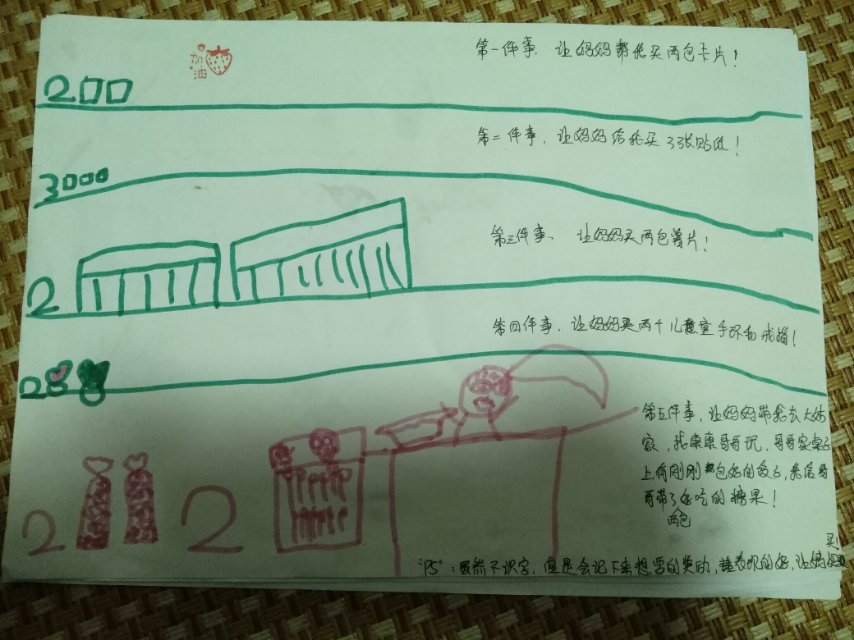 加油
第一件事、让妈妈帮我买两包卡片！
200
第二件事、让妈妈给我买33张贴纸！
3000
第三件事、让妈妈买两包薯片！
2
第四件事、让妈妈买两个儿童手环和戒指！
2
第五件事，让妈妈带我去大姑
家，找康康哥哥玩，哥哥家桌子
上有刚刚包好的饺子，我给哥
哥带了好吃的糖果！
两包
2 2
"PS"：虽然不识字，但是会记下来想要的奖励，表现的好，让妈妈买